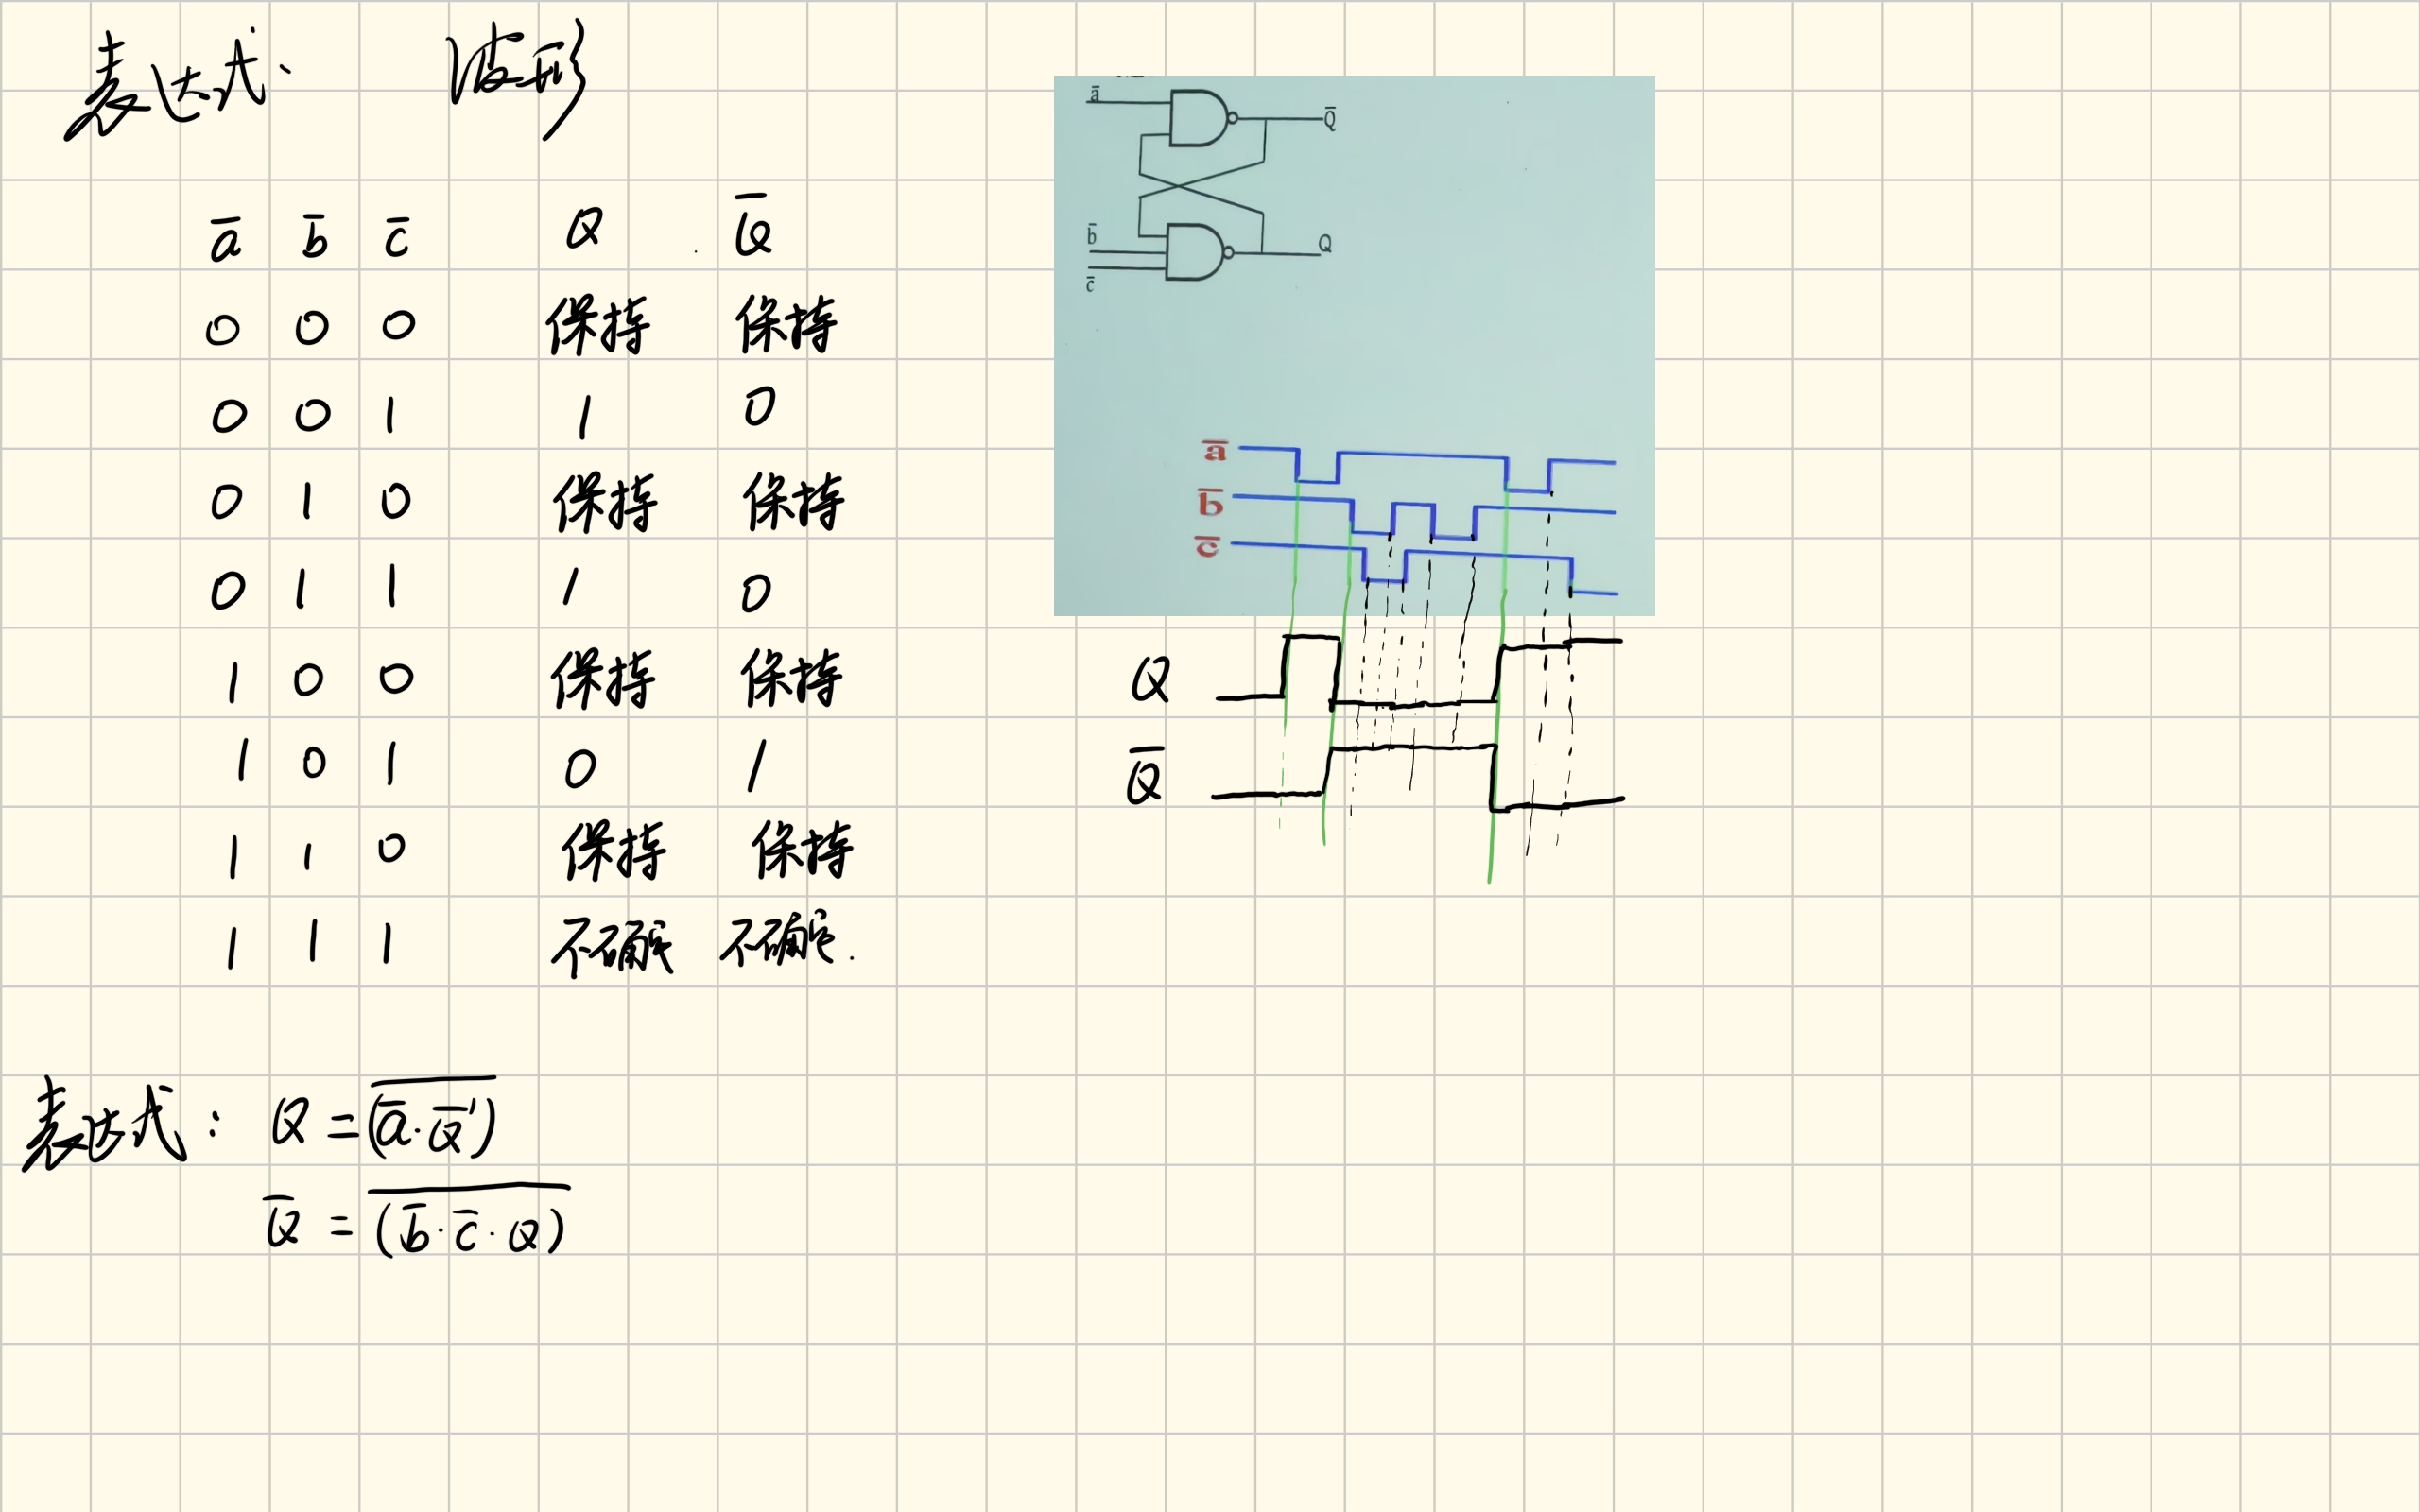 表达式. 波形
a̅ b̅ c̅ Q Q̅
0 0 0 保持 保持
0 0 1 1 0
0 1 0 保持 保持
0 1 1 1 0
1 0 0 保持 保持
1 0 1 0 1
1 1 0 保持 保持
1 1 1 不确定 不确定.
表达式: Q = \overline{(a̅·Q̅')}
Q̅ = \overline{(b̅·c̅·Q)}
a̅
Q̅
b̅
Q
c̅
a̅
b̅
c̅
Q
Q̅